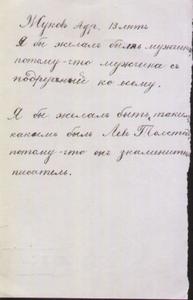 Жуковъ Адр. 13 лѣтъ
Я бы желалъ быть мужчина
потому-что мужчина съ
ко всему.
Я бы желалъ быть, такимъ
какимъ былъ Левъ Толстой
потому-что онъ знаменитый
писатель.